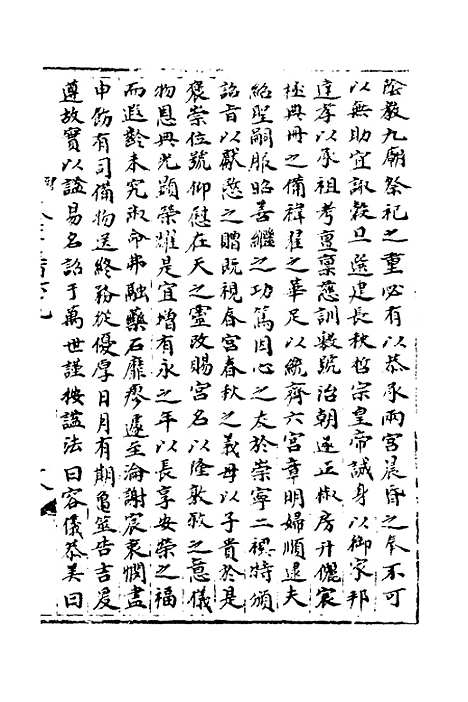 陰教九廟祭祀之重必有以恭承兩宮晨昏之奉不可
以無助宜諏穀旦選建長秋哲宗皇帝誠身以御家邦
達孝以承祖考亶稟慈訓敷號治朝遂正椒房升儷宸
極典冊之備褘翟之華足以統齊六宮章明婦順逮夫
紹聖嗣服昭善繼之功篤因心之友於崇寧二禩特頒
詔旨以厭愍之贈既視春宮春秋之義母以子貴於是
褒崇位號仰慰在天之靈改賜宮名以隆敦敘之意儀
物恩典光顯榮耀是宜增有永之年以長享安榮之福
而遐齡未究淑命弗融藥石靡瘳遽至淪謝宸衷憫盡
申飭有司備物送終務從優厚日月有期龜筮告吉爰
遵故實以諡易名詔于萬世謹按諡法曰容儀恭美曰